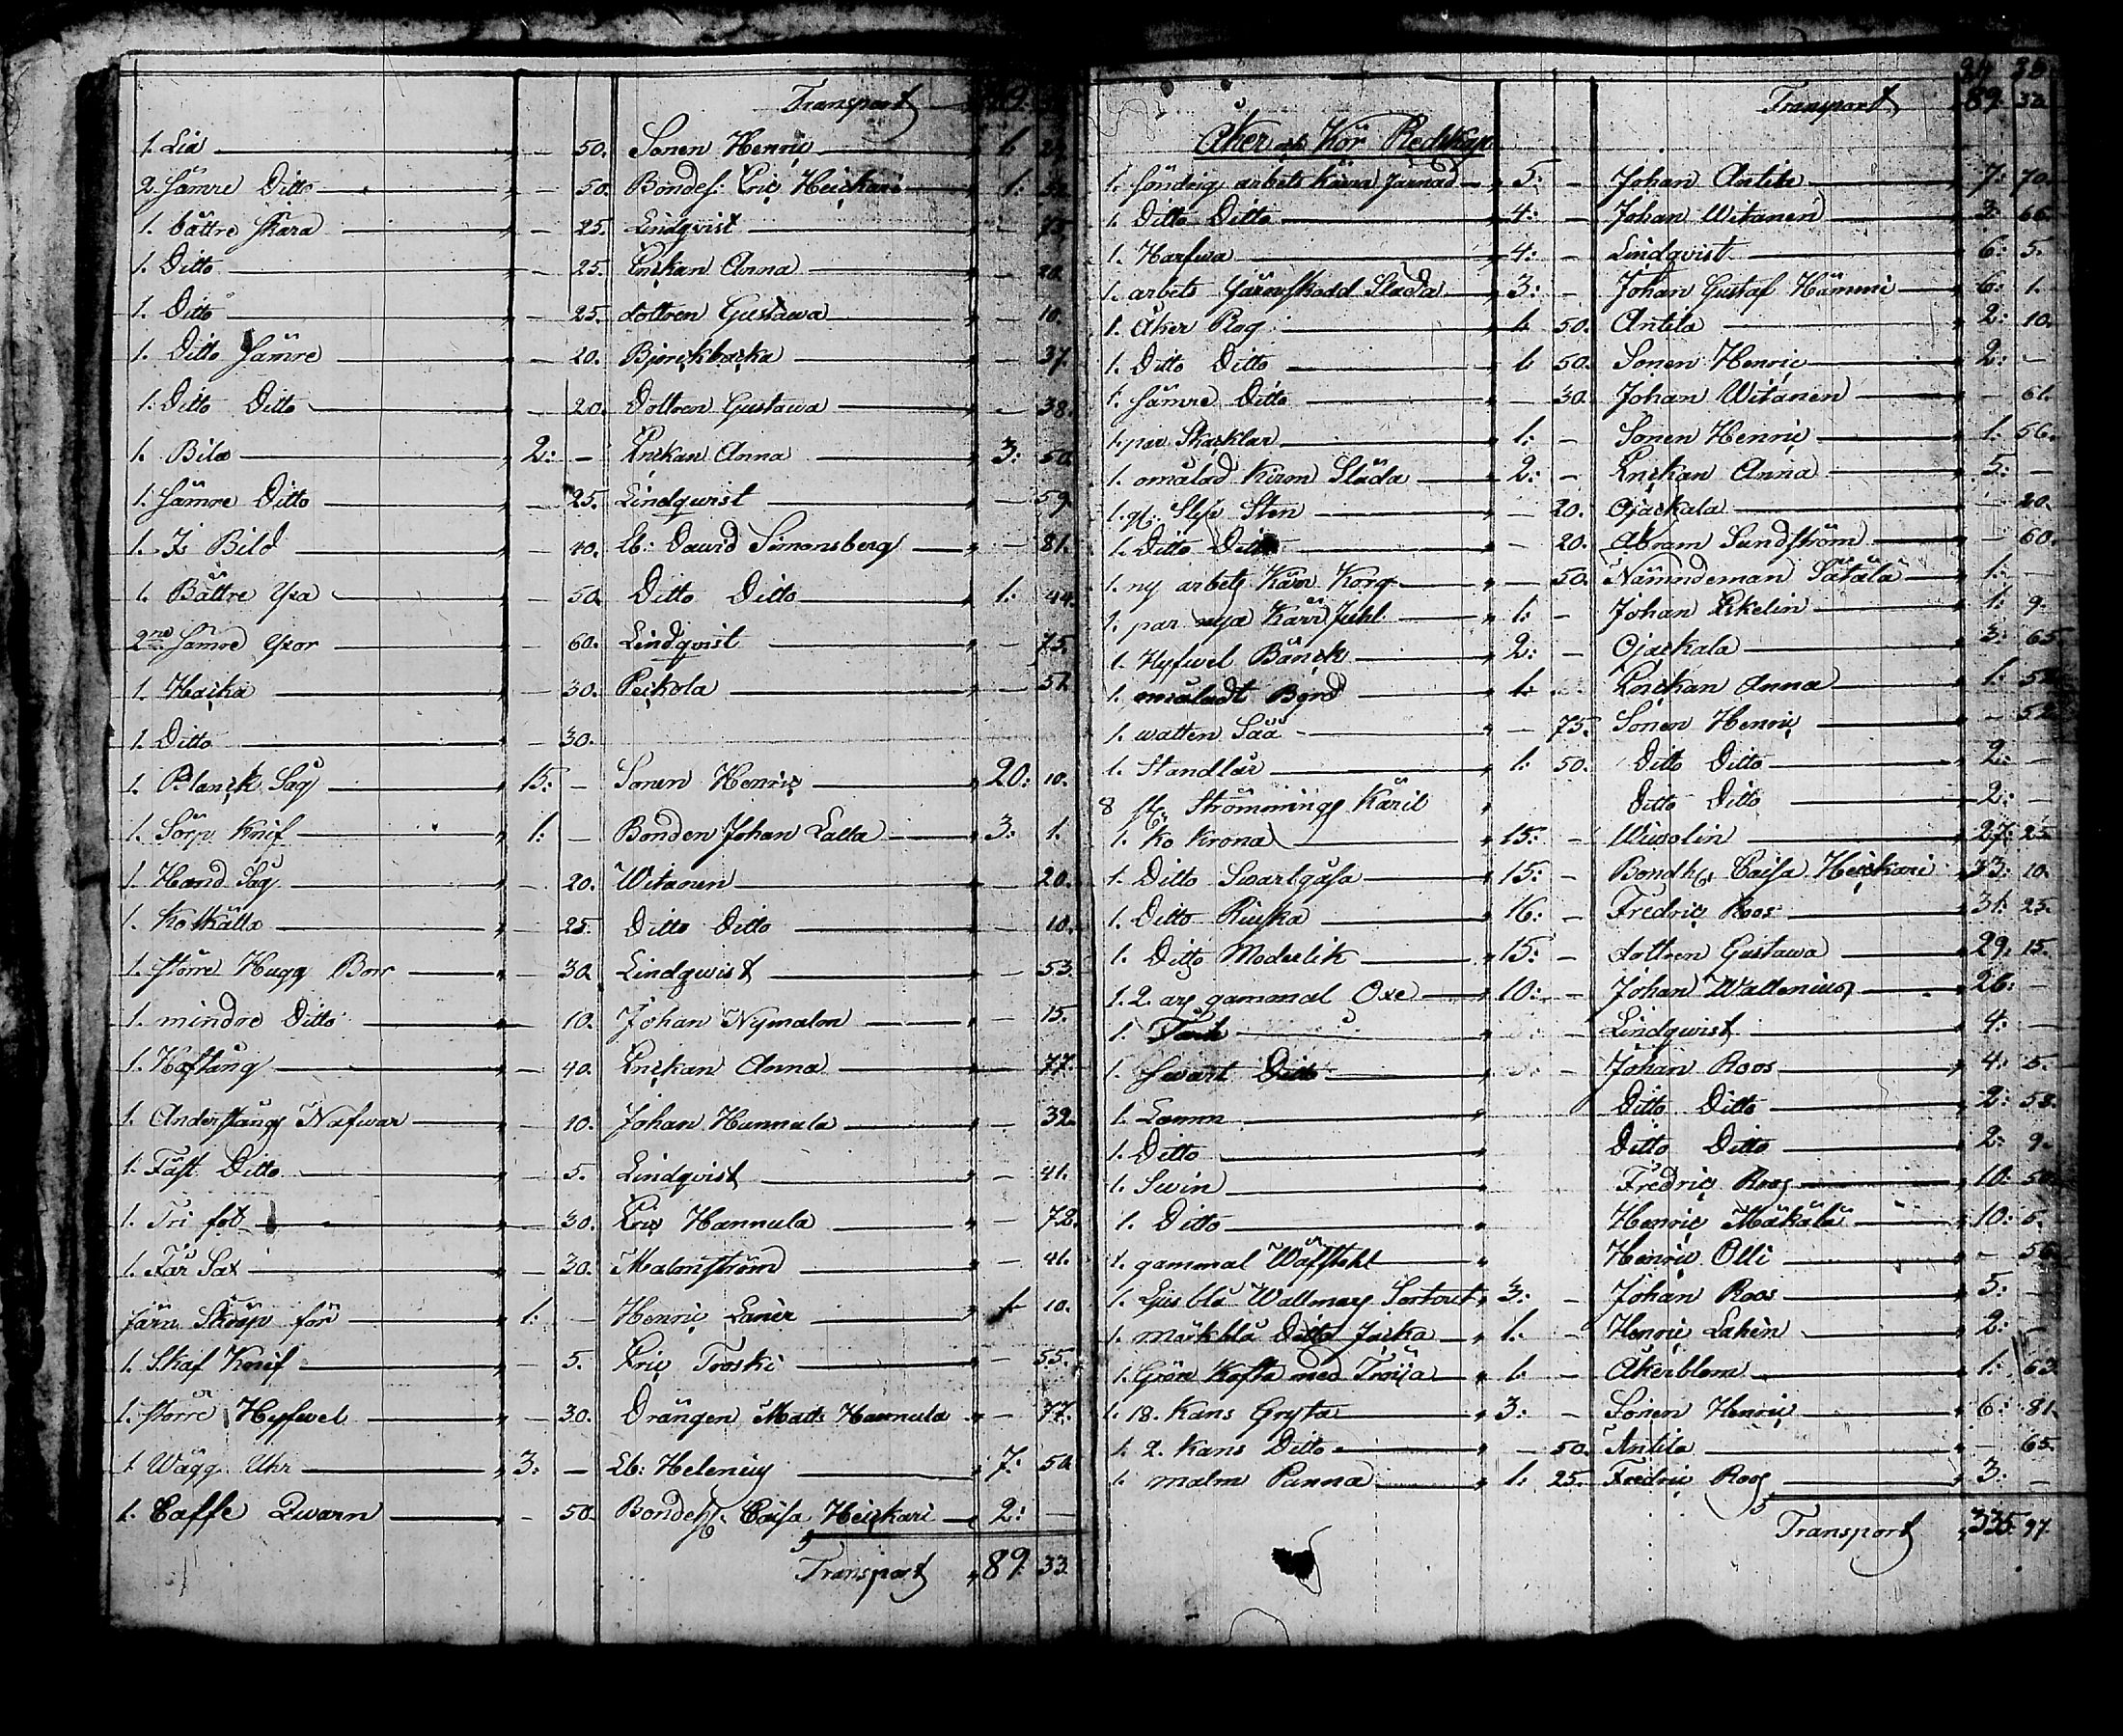 Transport
1. Lia — 50. Sonen Henric 1. 
2. Sämre Ditto — 50. Bondes: Eric Heickari 1:
1. bättre Skära — 25. Lindqvist — 75.
1. Ditto — 25. Enckan Anna — 20.
1. Ditto — 25. dottren Gustawa — 10.
1. Ditto Sämre — 20. Björckbacka — 37.
1. Ditto Ditto — 20. Dottren Gustawa — 38.
1. Bila 2: — Enckan Anna 3: 50.
1. Sämre Ditto — 25. Lindqwist — 59.
1. Is Bild — 40. Lb: David Simonsberg — 81.
1. Bättre Yxa — 50. Ditto Ditto 1: 44.
2ne Sämre Yxor — 60. Lindqvist — 75.
1. Hacka — 30. Peckola — 51.
1. Ditto — 30.
1. Planck Såg 15: — Sonen Henric 20: 10.
1. Sörp Knif 1: — Bonden Johan Lalla 3: 1.
1. Hand Såg — 20. Witanen — 20.
1. Ko Skälla — 25. Ditto Ditto — 10.
1. större Hugg Borr — 30. Lindqwist — 53.
1. mindre Ditto — 10. Johan Nymalm — 15.
1. Hoftång — 40. Enckan Anna — 77.
1. Anderstångs Nafwar — 10. Johan Hannula — 32.
1. Fäst Ditto — 5. Lindqvist — 41.
1. Tri fot — 30. Eric Hannula — 72.
1. Får Sax — 30. Malmström — 41.
Järn Skråp för 1: — Henric Lanér 1. 10.
1. Skaf Knif — 5. Eric Troski — 55.
1. större Hyfwel — 30. Drängen Matts Hannula — 77.
1. Wägg Uhr 3: — Lb: Helenius 7: 50.
1. Caffe Qwarn — 50. Bondes: Caisa Heickari 2: —
Transport 89. 33.
Transport 89. 33.
Åker och Kör Redskap
1. söndrig arbets Kärra Järnad 5: — Johan Antila 7: 70.
1. Ditto Ditto 4: — Johan Witanen 3: 66.
1. Harfwa 4: — Lindqvist 6: 5.
1. arbets Järnskodd Släda 3: — Johan Gustaf Hämmi 6: 1.
1. Åker Plog 1. 50. Antila 2: 10.
1. Ditto Ditto 1. 50. Sonen Henric 2: —
1. Sämre Ditto — 30. Johan Witanen — 61.
1. par Skacklar 1: — Sonen Henric 1: 56.
1. omålad Kirm Släda 2: — Enckan Anna 5: —
1. gl. Slip Sten — 20. Ojackala — 20.
1. Ditto Ditto — 20. Abram Sundström — 60.
1. ny arbets Kärr Korg — 50. Nämndeman Sätälä 1: —
1. par nya Kärr Juhl 1: — Johan Ekelin 1: 9.
1. Hyfwel Bänck 2: — Ojackala 3: 65.
1. omåladt Bord 1: — Enckan Anna 1:
1. watten Såå — 75. Sonen Henric — 52.
1. Standlår 1: 50. Ditto Ditto 2: —
8 st: Strömmings Käril Ditto Ditto 2: —
1. Ko Krona 15: — Wiwolin 27: 25.
1. Ditto Swartgåsa 15: — Bondhs: Caisa Heickari 33: 10.
1. Ditto Ruska 16: — Fredric Roos 31: 25.
1. Ditto Moderlik 15: — dottren Gustawa 29: 15.
1. 2. års gammal Oxe 10: — Johan Wallenius 26: —
1. — Lindqwist 4: —
1. Swart Ditto — Johan Roos 4: 5.
1. Lamm Ditto Ditto 2: 58.
1. Ditto Ditto Ditto 2: 9.
1. Swin Fredric Roos 10: 50.
1. Ditto Henric Mäkälä 10: 5.
1. gammal Wäfstohl Henric Olli — 56.
1. Ljusblå Wallmars Sortout 3: — Johan Roos 5: —
1. mörkblå Ditto Jacka 1: — Henric Lahén 2: —
1. Grön Kofta med Tröija 1. — Åkerblom 1: 63.
1. 18. Kans Gryta 3: — Sonen Henric 6: 81.
1. 2. Kans Ditto — 50. Antila — 65.
1. malm Panna 1. 25. Fredric Roos 3: —
Transport 335. 97.